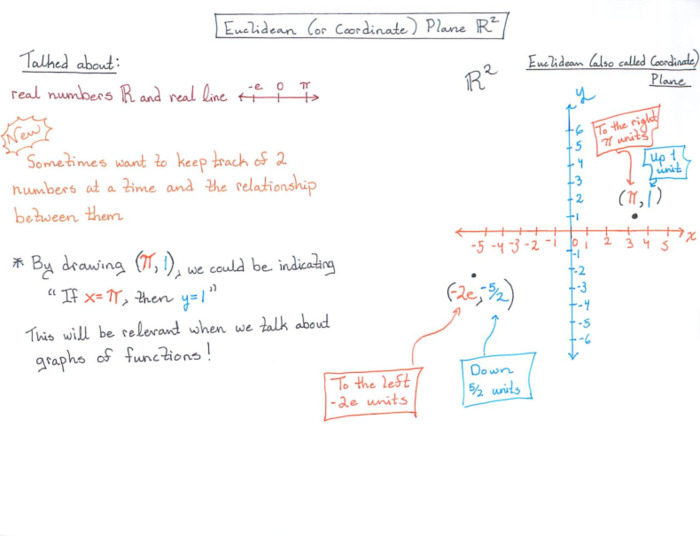 Euclidean (or Coordinate) Plane ℝ²
Talked about:
real numbers ℝ and real line -e 0 π
New
Sometimes want to keep track of 2
numbers at a time and the relationship
between them
* By drawing (π,1), we could be indicating
"If x=π, then y=1"
This will be relevant when we talk about
graphs of functions!
ℝ²
Euclidean (also called Coordinate)
Plane
y
6
5
4
3
2
1
To the right
π units
Up 1
unit
(π,1)
-5 -4 -3 -2 -1 0 1 2 3 4 5 x
-1
-2
-3
-4
-5
-6
(-2e,-5/2)
To the left
-2e units
Down
5/2 units